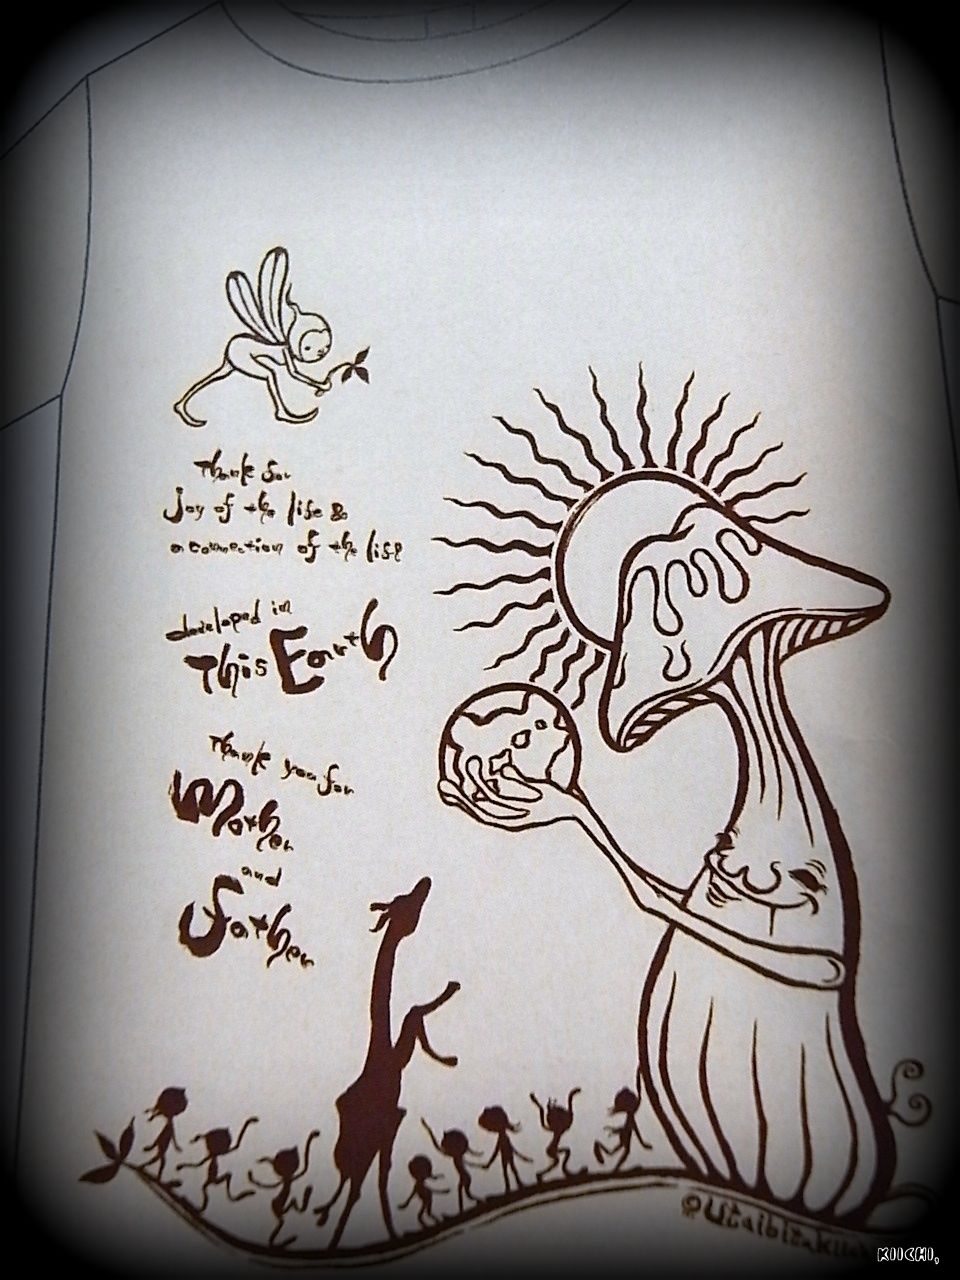 Thank for
Joy of the life &
a connection of the life
developed in
This Earth
Thank you for
Mother
and
Father
©Utaibitokiich
KIICHI,